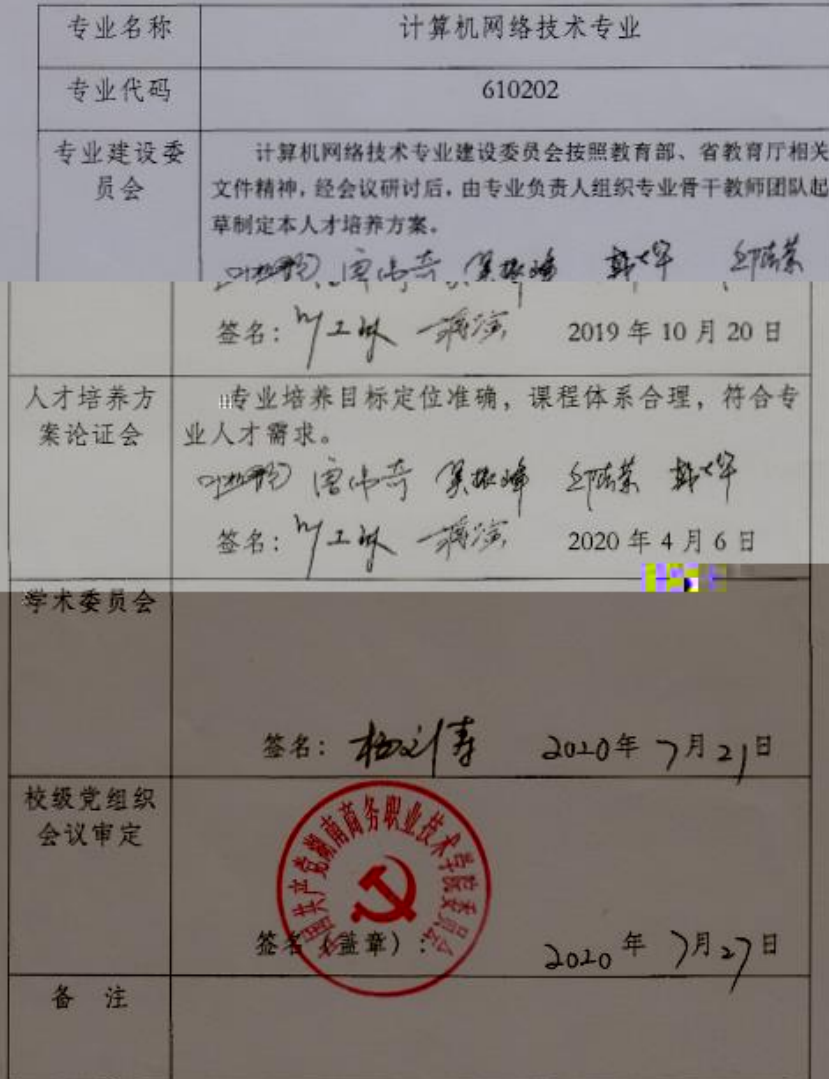 专业名称 计算机网络技术专业
专业代码 610202
专业建设委员会 计算机网络技术专业建设委员会按照教育部、省教育厅相关
文件精神，经会议研讨后，由专业负责人组织专业骨干教师团队起
草制定本人才培养方案。
签名： 2019年10月20日
人才培养方案论证会 专业培养目标定位准确，课程体系合理，符合专
业人才需求。
唐伟奇 吴振峰
签名： 2020年4月6日
学术委员会
签名： 2020年7月21日
校级党组织会议审定
中国共产党湖南商务职业技术学院委员会
签名（盖章）： 2020年7月27日
备 注